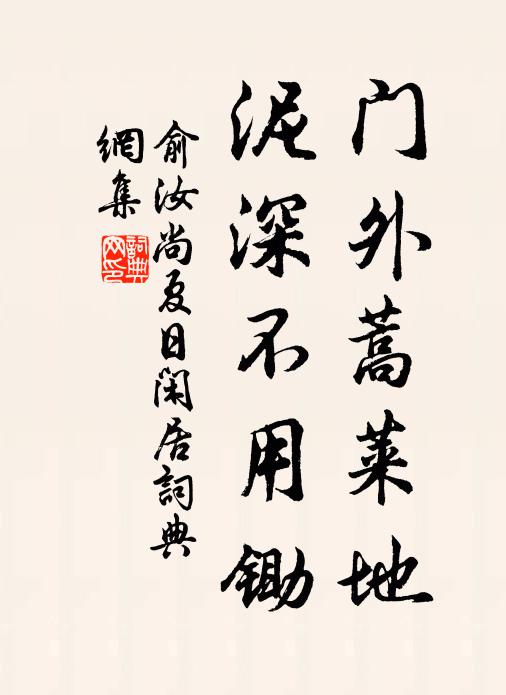 门外蒿莱地
泥深不用锄
俞汝尚夏日闲居詞典
網集
詞典
网印